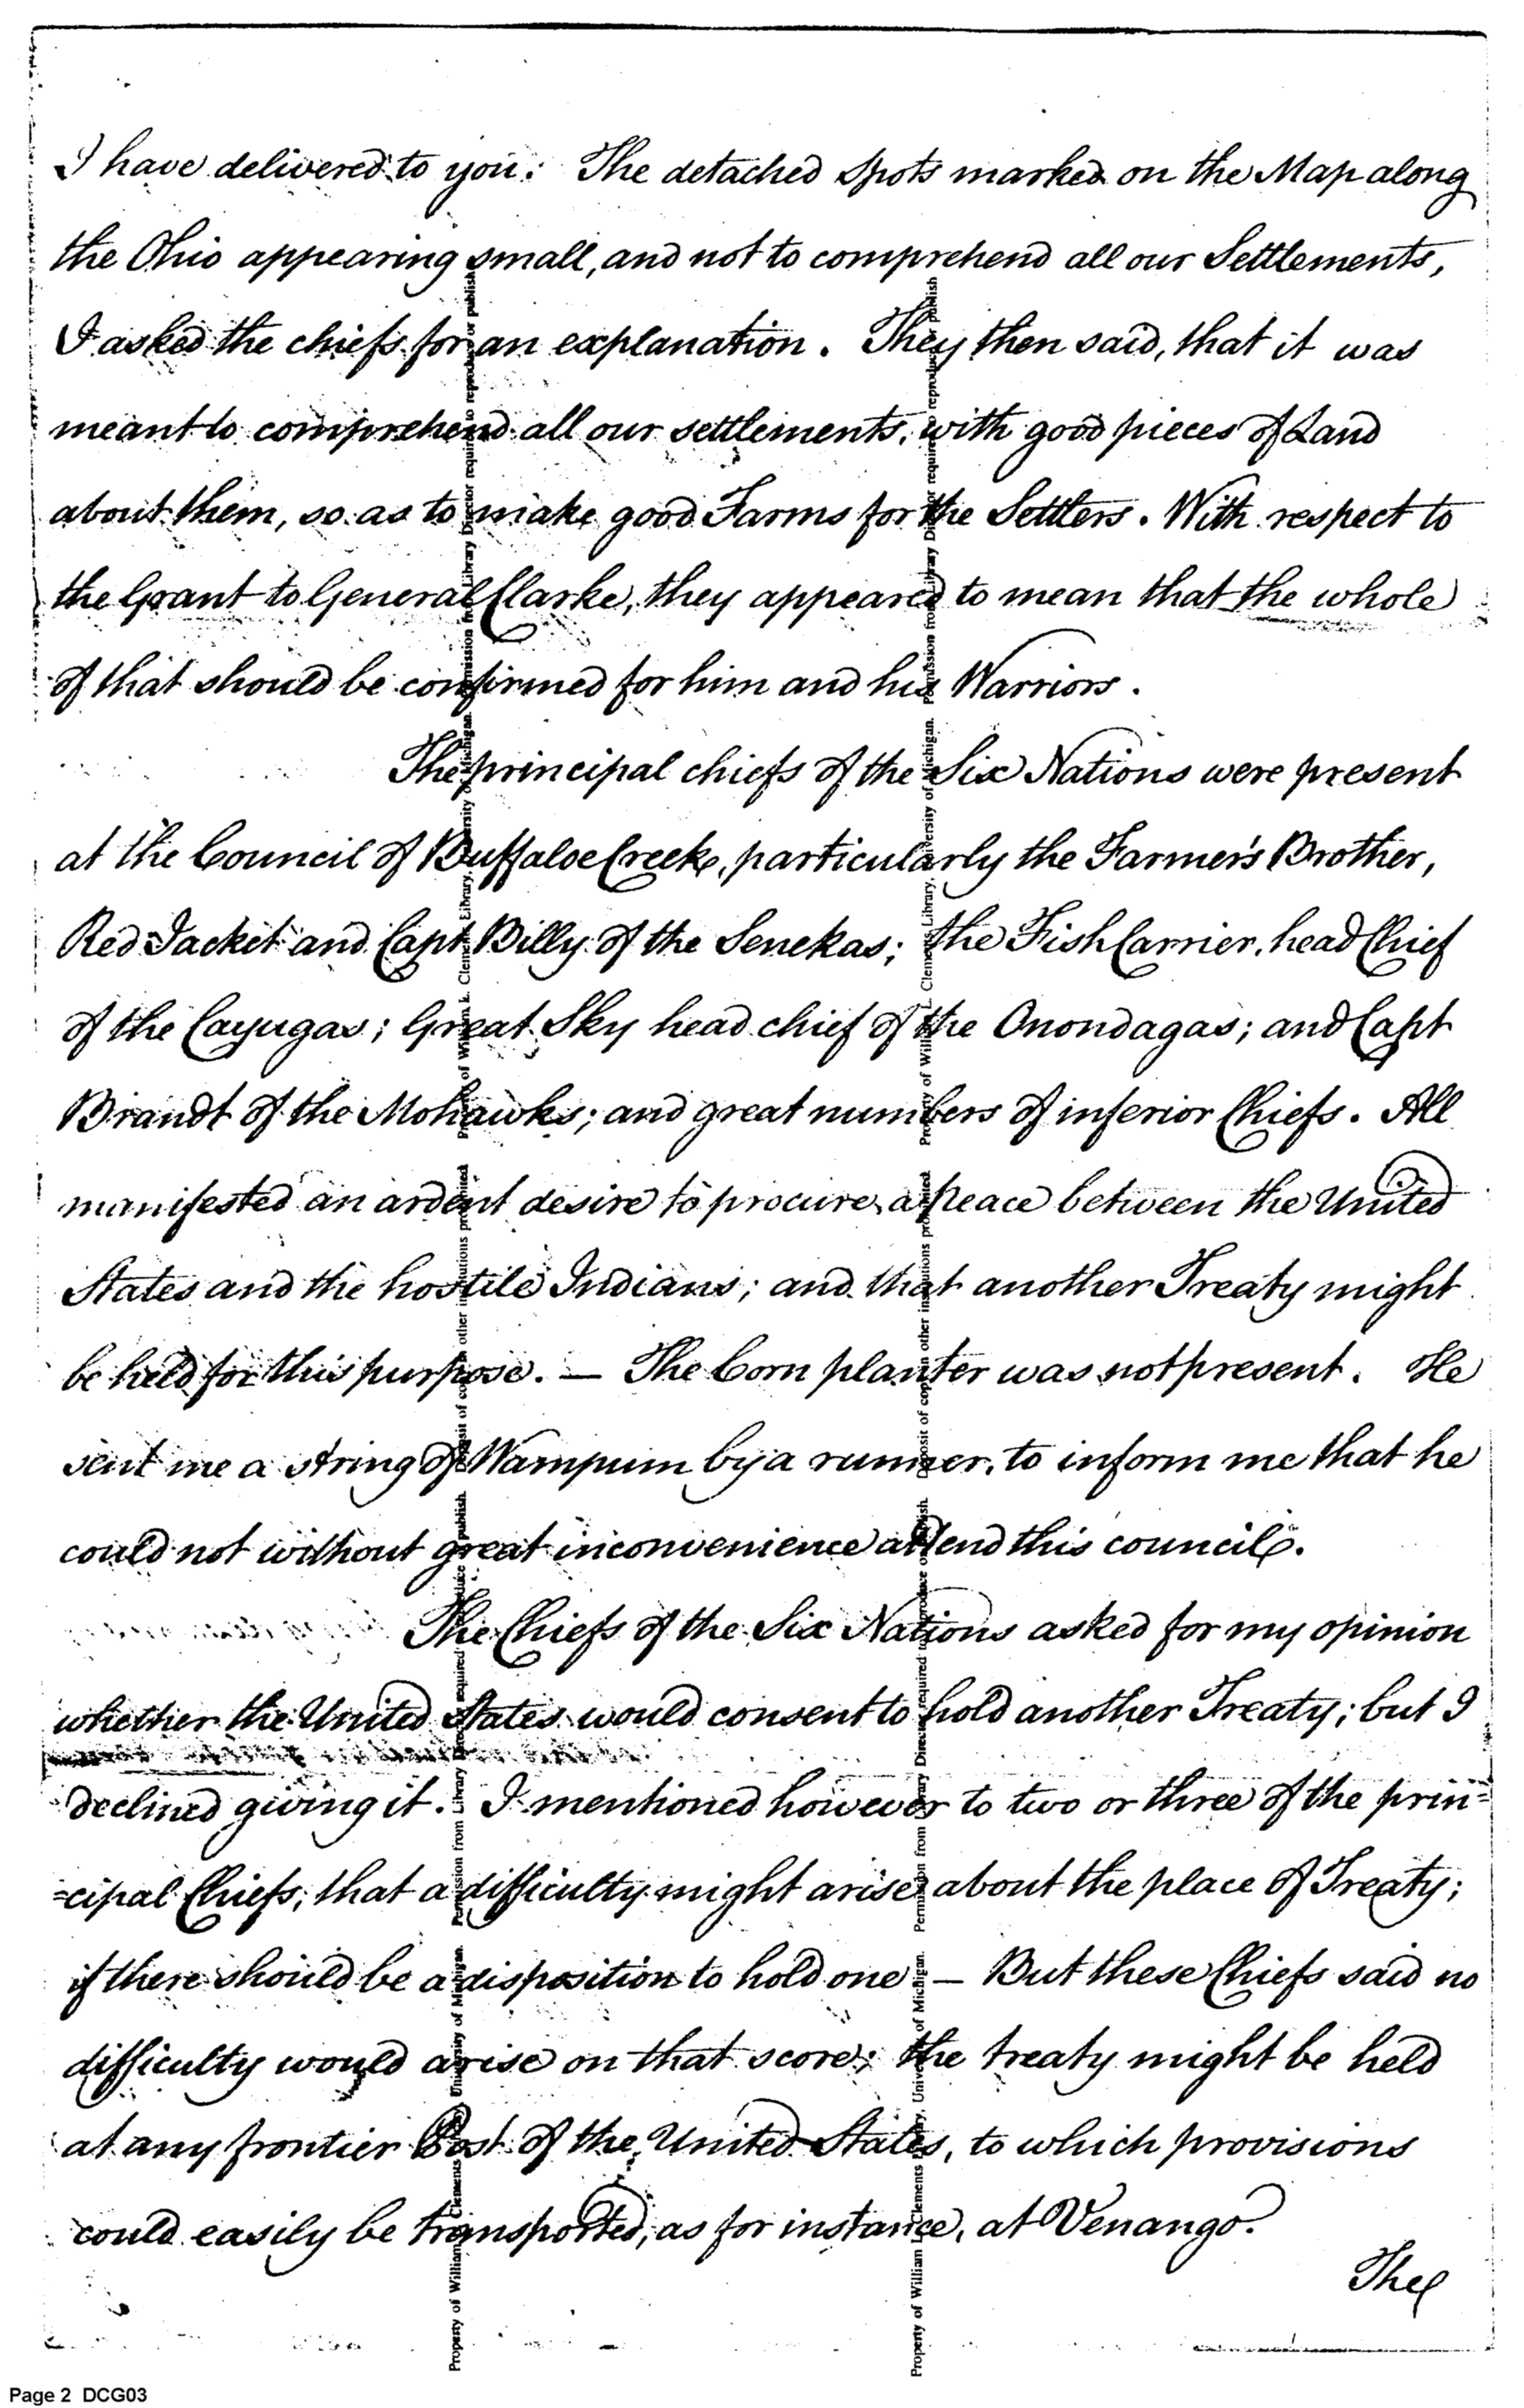 I have delivered to you: The detached spots marked on the Map along
the Ohio appearing small, and not to comprehend all our Settlements,
I asked the chiefs for an explanation. They then said, that it was
meant to comprehend all our settlements, with good pieces of Land
about them, so as to make good Farms for the Settlers. With respect to
the Grant to General Clarke, they appeared to mean that the whole
of that should be confirmed for him and his Warriors.
The principal chiefs of the Six Nations were present
at the Council of Buffaloe Creek, particularly the Farmer's Brother,
Red Jacket and Capt Billy of the Senekas; the Fish Carrier, head Chief
of the Cayugas; Great Sky head chief of the Onondagas; and Capt
Brandt of the Mohawks; and great numbers of inferior Chiefs. All
manifested an ardent desire to procure a peace between the United
States and the hostile Indians; and that another Treaty might
be held for this purpose. — The Corn planter was not present. He
sent me a string of Wampum by a runner, to inform me that he
could not without great inconvenience attend this council.
The Chiefs of the Six Nations asked for my opinion
whether the United States would consent to hold another Treaty; but I
declined giving it. I mentioned however to two or three of the prin=
=cipal Chiefs, that a difficulty might arise about the place of Treaty;
if there should be a disposition to hold one — But these Chiefs said no
difficulty would arise on that score; the treaty might be held
at any frontier Post of the United States, to which provisions
could easily be transported, as for instance, at Venango.
The
Property of William L. Clements Library, University of Michigan. Permission from Library Director required to reproduce or publish. Deposit of copies in other institutions prohibited.
Property of William L. Clements Library, University of Michigan. Permission from Library Director required to reproduce or publish. Deposit of copies in other institutions prohibited.
Page 2 DCG03